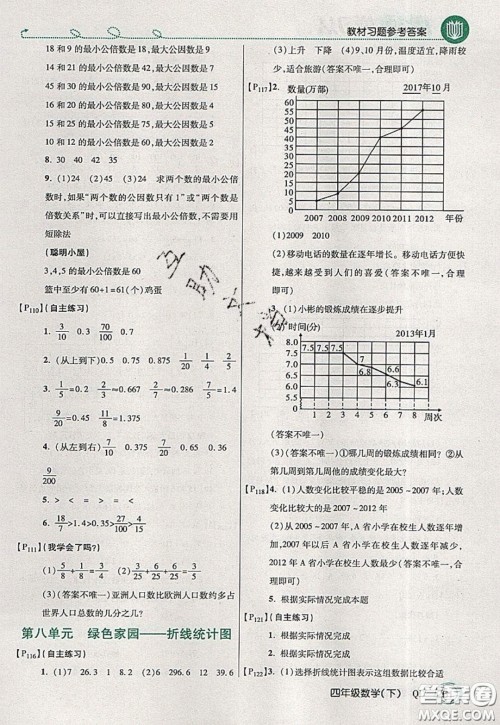 教材习题参考答案
18 和 9 的最小公倍数是 18,最大公因数是 9
14 和 21 的最小公倍数是 42,最大公因数是 7
45 和 15 的最小公倍数是 45,最大公因数是 15
16 和 40 的最小公倍数是 80,最大公因数是 8
10 和 12 的最小公倍数是 60,最大公因数是 2
8. 30 40 42 35
9. (1)24 (2)24 求两个数的最小公倍
数时,如果“两个数的公因数只有 1”或“两个数是
倍数关系”时,可以直接写出最小公倍数,不需要用
短除法
(聪明小屋)
3,4,5 的最小公倍数是 60
篮中至少有 60+1=61(个)鸡蛋
【P110】(自主练习)
1. 3/10 0.3 70/100 0.7
2. (从上到下) 0.5 0.75 4/5 1/20
3. 1/5=0.2 2/3≈0.667 1/6≈0.167
9/20=0.45 4/5=0.8
4. (从左到右) 7/10 3/10 0.75 1/8
0.54 9/50
5. > < = > = <
6. 9/5>1.4>0.35>27/100>4/15
【P111】(我学会了吗?)
(1)5/8 1/8 (2)3/4 (3)1/30 1/60
(4)(答案不唯一)亚洲人口数比欧洲人口数约多占
世界人口总数的几分之几?
第八单元 绿色家园——折线统计图
【P116】(自主练习)
1. (1)7 26.3 1 8.2 (2)7 12 9 12
(3)上升 下降 (4)9、10 月份,温度适宜,降雨较
少,适合旅游(答案不唯一,合理即可)
【P117】2. 数量(万部) 2017年10月
60
50
40
30
20
10
0
2007 2008 2009 2010 2011 2012 年份
(1)2009 2010
(2)移动电话的数量在逐年增长。移动电话方便快
捷,越来越受到人们的喜爱(答案不唯一,合理即
可)
3. (1)小彬的锻炼成绩在逐步提升
(2)时间(分) 2013年1月
8.0
7.5
7.0
6.5
6.0
5.5
0
7.5 7.5 7.5 7 6.8 6.6 6.3 6.1
1 2 3 4 5 6 7 8 周次
(答案不唯一)
(3)(答案不唯一)①哪几周的成绩没有变化?②从
第几周到第几周他的成绩变化最大?
【P118】4. (1)人数变化比较平稳的是 2005~2007 年,变化
较大的是 2007~2012 年
(2)从 2005~2007 年,A 省小学在校生人数逐年增
加,2007~2012 年以后 A 省小学在校生人数逐年减少,
2012 年 A 省小学在校生人数减到最少(答案不唯
一)
5. 根据实际情况完成本题
6. 根据实际情况完成
【P121】根据实际情况完成
【P122】(1)选择折线统计图表示这组数据比较合适
四年级数学(下)
答案圈
MXQE.COM